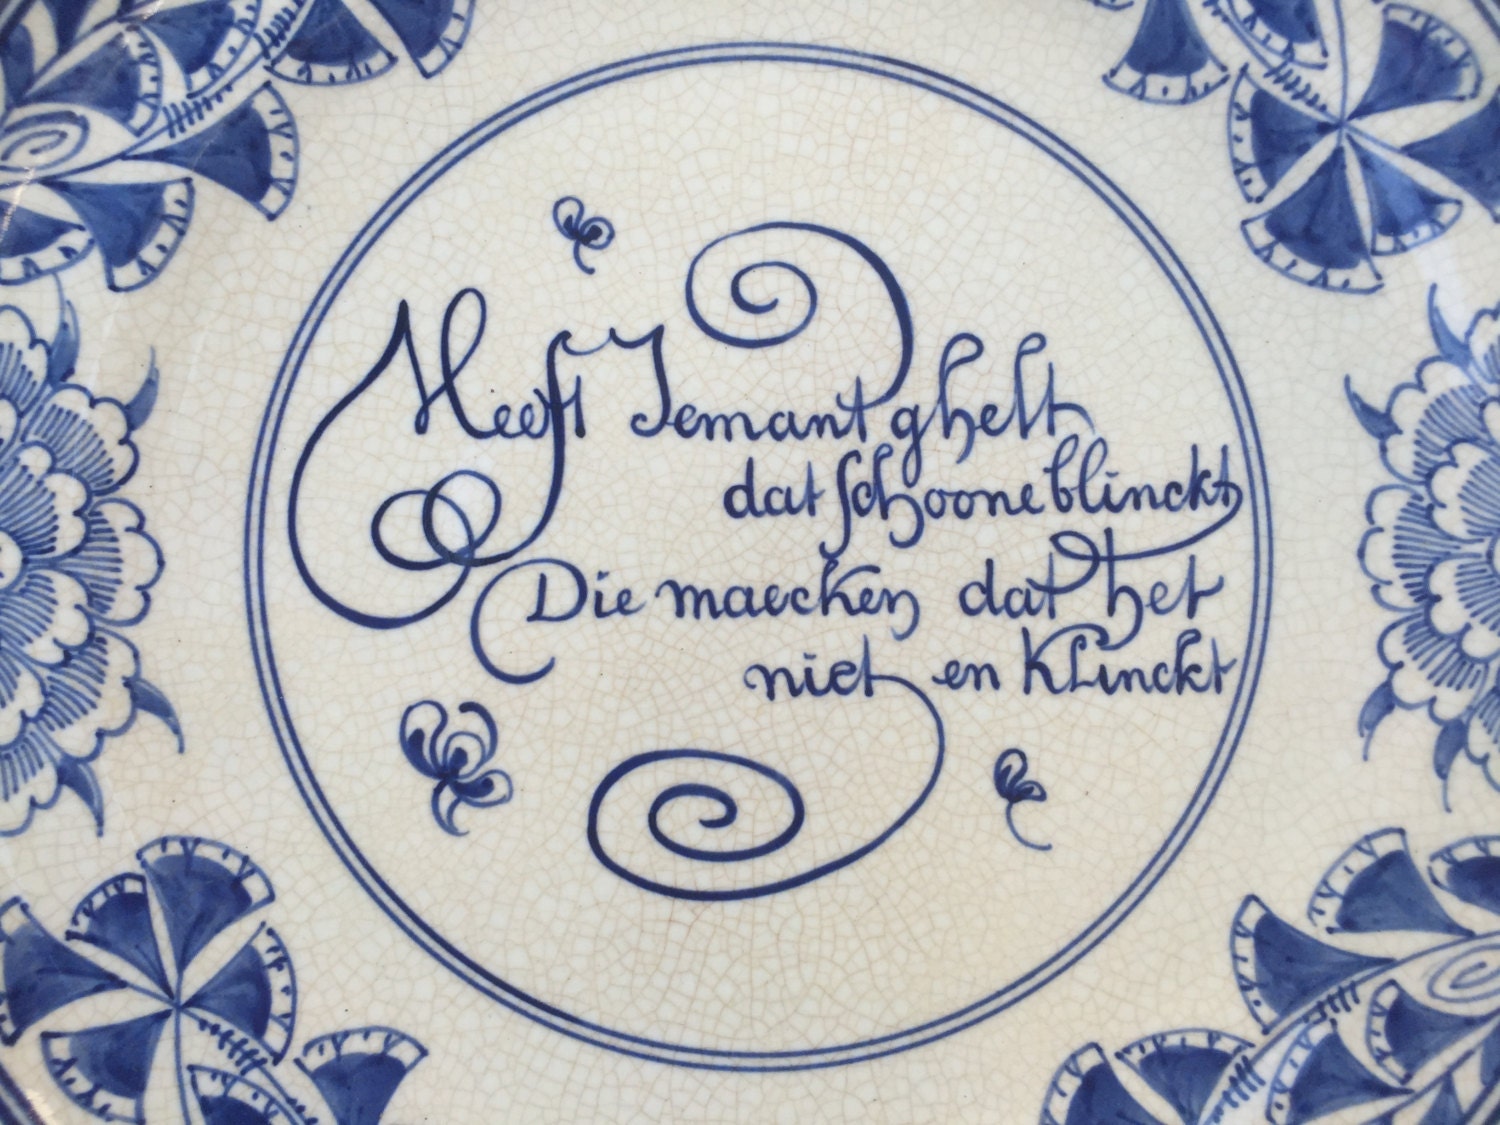 Heeft Iemant ghelt
dat schoone blinckt
Die maecken dat het
niet en Klinckt